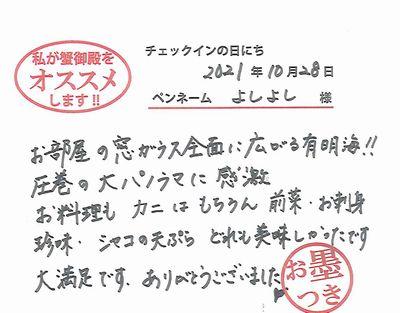 私が蟹御殿を
オススメ
します!!
チェックインの日にち
2021年10月28日
ペンネーム よしよし 様
お部屋の窓ガラス全面に広がる有明海!!
圧巻の大パノラマに感激
お料理も カニはもちろん 前菜・お刺身
珍味・シャコの天ぷら どれも美味しかったです
大満足です。ありがとうございました
お墨
つき